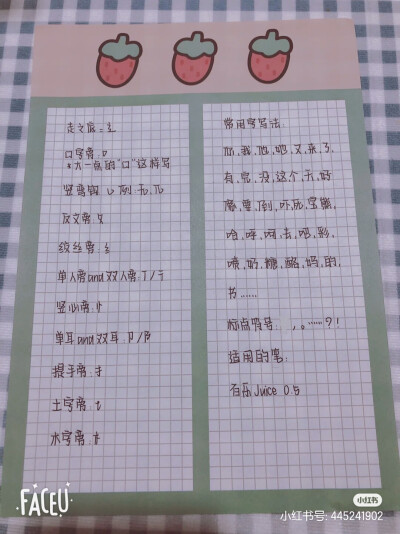 走之底:辶
口字旁:口
*大一点的"口"这样写
竖弯钩:乚例:无,兀
反文旁:攵
绞丝旁:纟
单人旁and双人旁:亻/彳
竖心旁:忄
单耳and双耳:卩/阝
提手旁:扌
土字旁:土
水字旁:
常用字写法:
你,我,他,她,又,来,了,
有,您,没,这个,天,好
像,要,倒,吓,死,宝,
哈,呼,啊,去,吧,彩,
喷,奶,糖,酪,妈,的,
书……
标点符号: ,。……?!
适用的笔:
百乐Juice 0.5
FACEU
小红书
小红书号: 445241902